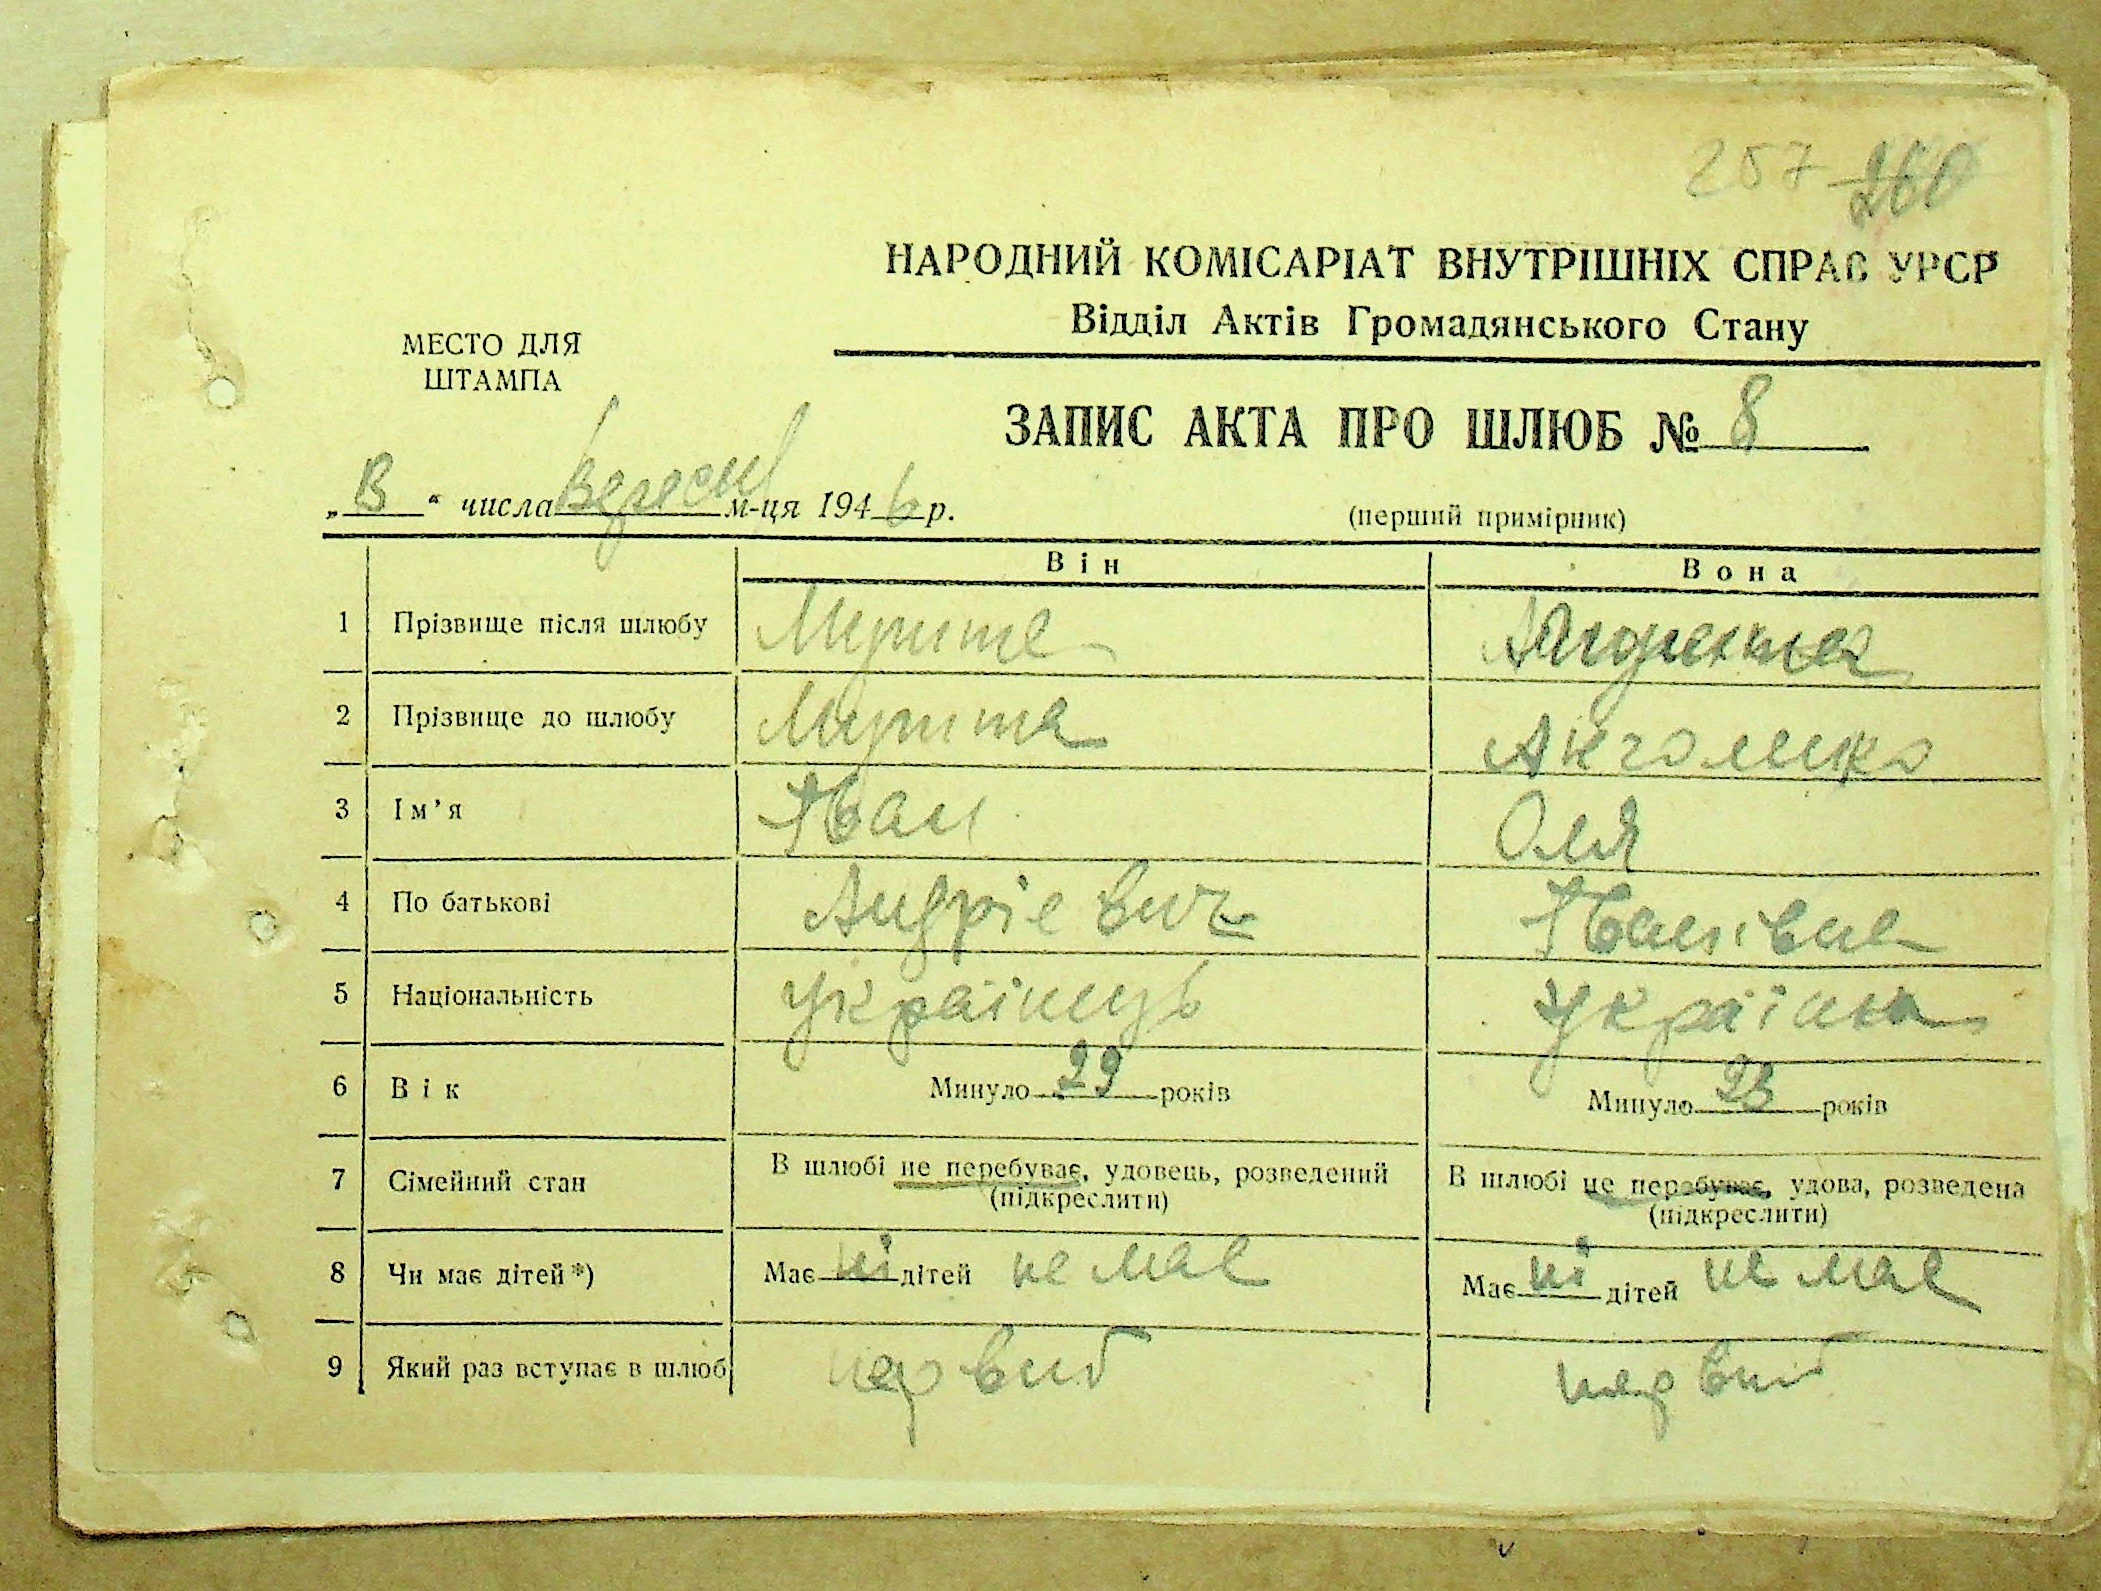 257 260
НАРОДНИЙ КОМІСАРІАТ ВНУТРІШНІХ СПРАВ УРСР
Відділ Актів Громадянського Стану
МЕСТО ДЛЯ
ШТАМПА
ЗАПИС АКТА ПРО ШЛЮБ № 8
„ “ числа Вересня м-ця 1946 р.
(перший примірник)
Він Вона
1 Прізвище після шлюбу
2 Прізвище до шлюбу
3 Ім’я Іван Оля
4 По батькові Андріевич Іванівна
5 Національність Українець Українка
6 Вік Минуло 29 років Минуло 23 років
7 Сімейний стан В шлюбі не перебуває, удовець, розведений В шлюбі не перебуває, удова, розведена
(підкреслити) (підкреслити)
8 Чи має дітей*) Має ні дітей не має Має ні дітей не має
9 Який раз вступає в шлюб первий первий